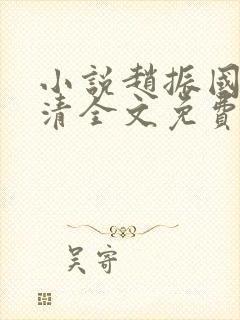 小說趙振國
清全文免費
吴寄